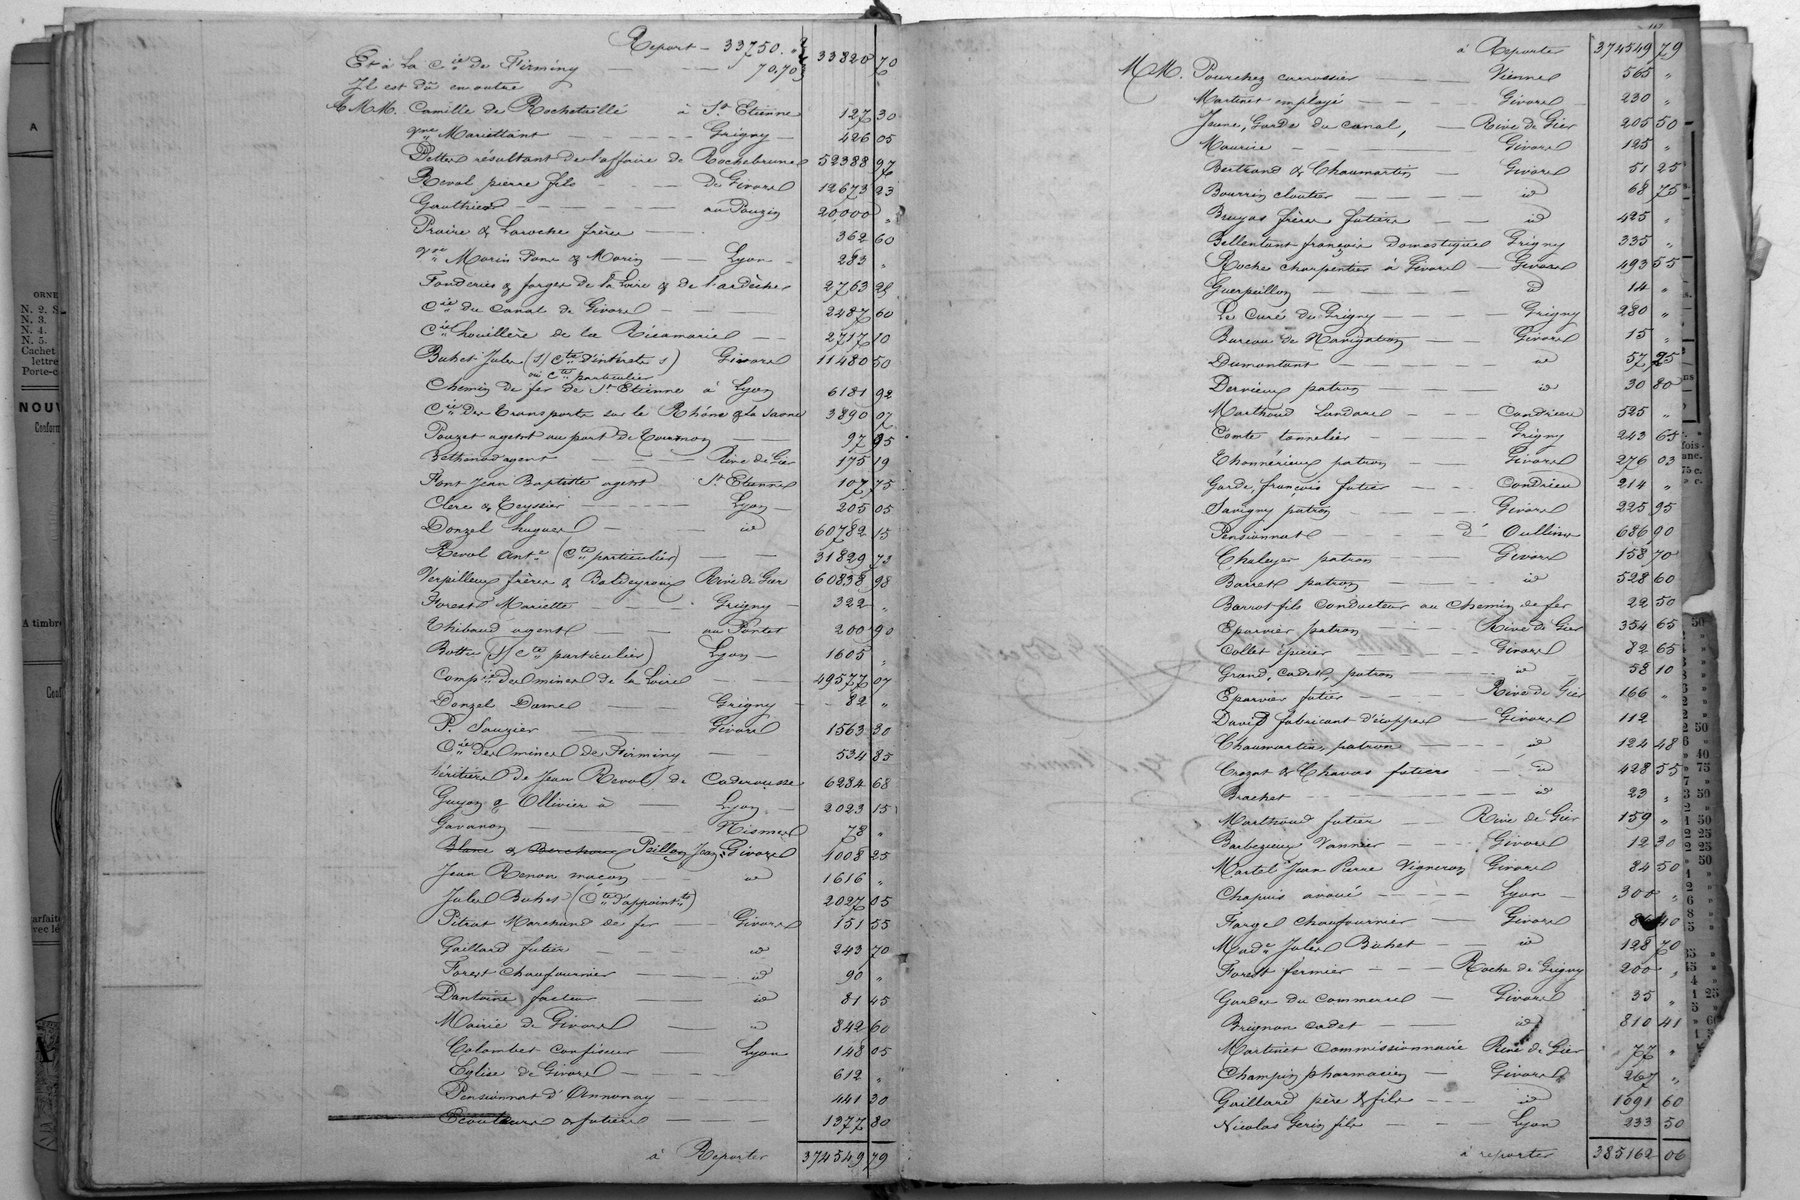 Report — 33750. "
33820 70
Et à La Cie de Firminy — — — 70.70
Il est dû en outre
A M.M. Camille de Rochetaillé à St Etienne 127 30
Vve Mariettant - - - - - Grigny — 426 05
Dettes résultant de l'affaire de Rochebrune 52388 97
Revol pierre fils - - - - De Givors 12673 23
Gauthier - - - - - au Pouzin 20000 "
Praire & Laroche frères — — 362 60
Vve Morin Pons & Morin — — Lyon - 283 "
Fonderies & forges de la Loire & de l'ardèche 2763 25
Cie du Canal de Givors — — — — 2487 60
Cie houillère de la Ricamarie — — 2717 10
Buhet Jules (s/ Cte d'intérêts) Givors 11480 50
ou Cte particulier
Chemin de fer de St Etienne à Lyon 6181 92
Cie des transports sur le Rhône & la Saone 3890 07
Pouzet agent au port de Tournon — — 97 95
Bethenod agent — — — Rive de Gier 175 19
Font Jean Baptiste agent St Etienne 107 75
Clerc & Teyssier - - - - - Lyon — 205 05
Donzel hugues — — — id 60782 15
Revol Ante (Cte particulier) — — 31829 73
Verpilleux frères & Baldeyroux Rive de Gier 60838 98
Forest Mariette - - - - Grigny — 322 "
Thibaud agent — — au Pontet 200 90
Bottu (s/ Cte particulier) Lyon — 1605 "
Compie des mines de la Loire — — — 49577 07
Donzel Dame — — — Grigny - 82 "
P. Sauzier — — — Givors 1563 30
Cie des mines de Firminy — — 534 85
héritiers de Jean Revol de Caderousse 6284 68
Guyon & Ollivier à — Lyon — 2023 15
Gavanon — — — — Nismes 78 "
Blanc & Berchoux Peillon Jean Givors 1008 25
Jean Renon maçon — — id 1616 "
Jules Buhet (Cte d'appointts) 2027 05
Pitrat Marchand de fer — — Givors 151 55
Gaillard futier — — — id 243 70
Forest Chaufournier — — — id 90 "
Dantoine facteur — — id 81 45
Mairie de Givors — — " 342 60
Colombet confiseur — — Lyon 148 05
Eglise de Givors - - - - 612 "
Pensionnat d'Annonay — — — — 441 30
Ecouteurs & futiers — — — — 1377 80
à Reporter 374549 79
à Reporter 374549 79
M.M. Pourchez carrossier — — — Vienne 565 "
Martinet employé — — — — Givors 230 "
Jeune, Garde du Canal, — Rive de Gier 205 50
Maurice — — — — — Givors 125 "
Bertrand & Chaumartin — — Givors 51 25
Bourrin cloutier — — — — id 68 75
Bruyas frères futiers — — id 425 "
Bellentant françois Domestique Grigny 335 "
Roche charpentier à Givors — Givors 493 55
Guerpillon — — — — — id 14 "
Le Curé de Grigny — — — — Grigny 280 "
Bureau de Navigation — — Givors 15 "
Dumontant — — — — — id 57 25
Dervieux patron — — — — id 30 80
Marthoud Landars — — — Condrieu 525 "
Comte tonnelier — — — — Grigny 243 65
Thonnérieux patron — — Givors 276 03
Garde, françois futier — — Condrieu 214 "
Savigny patron — — — — Givors 225 95
Pensionnat — — — — d' Oullins 686 90
Chaleyer patron — — — Givors 158 70
Barret patron — — — — id 528 60
Barrot fils Conducteur au Chemin de fer 22 50
Eparvier patron — — — Rive de Gier 354 65
Collet épicier — — — — Givors 82 65
Grand, cadet, patron — — — id 58 10
Eparvier futier — — — — Rive de Gier 166 "
David fabricant d'écoppes — Givors 112
Chaumartin, patron — — — — id 124 48
Crozat & Chavas futiers — — id 428 55
Brachet — — — — — id 23 "
Marthoud futier — — Rive de Gier 159 "
Barbezieux Vannier — — — Givors 12 30
Martel Jean Pierre Vigneron Givors 84 50
Chapuis avoué — — — — Lyon — 300 "
Fargel Chaufournier — — — Givors 40
Made Jules Buhet — — id 128 70
Forest fermier — — — Roche de Grigny 200 "
Gardes du Commerce — Givors 35 "
Brignon cadet — — — id 810 41
Martinet Commissionnaire Rive de Gier 77 "
Champin pharmacien — Givors 267 "
Gaillard père & fils — — — id 1091 60
Nicolas Gerin fils — — — Lyon 233 50
à reporter 385162 06
A
ORNE
N. 2. S
N. 3.
N. 4.
N. 5.
Cachet
lettre
Porte-c
NOUV
Conform
A timbre
Conf